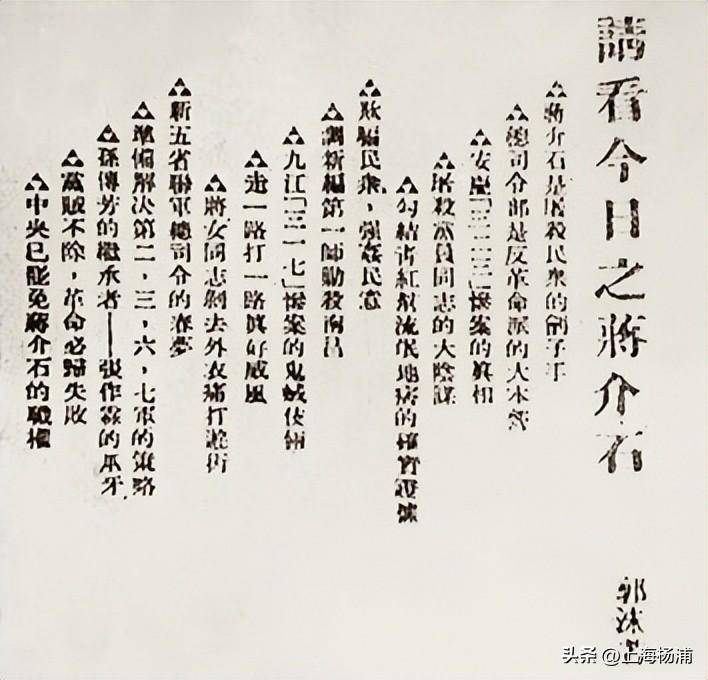 請看今日之蔣介石
郭沫
△蔣介石是屠殺民衆的劊子手
△總司令部是反革命派的大本營
△安慶「三二三」慘案的真相
△屠殺黨員同志的大陰謀
△勾結青紅幫流氓地痞的確實證據
△欺騙民衆，強姦民意
△調新編第一師助殺南昌
△九江「三一七」慘案的鬼蜮伎倆
△走一路打一路真好威風
△將女同志剝去外衣痛打遊街
△新五省聯軍總司令的春夢
△準備解決第二，三，六，七軍的策略
△孫傳芳的繼承者——張作霖的爪牙
△黨賊不除，革命必歸失敗
△中央已罷免蔣介石的職權
头条 @上海杨浦